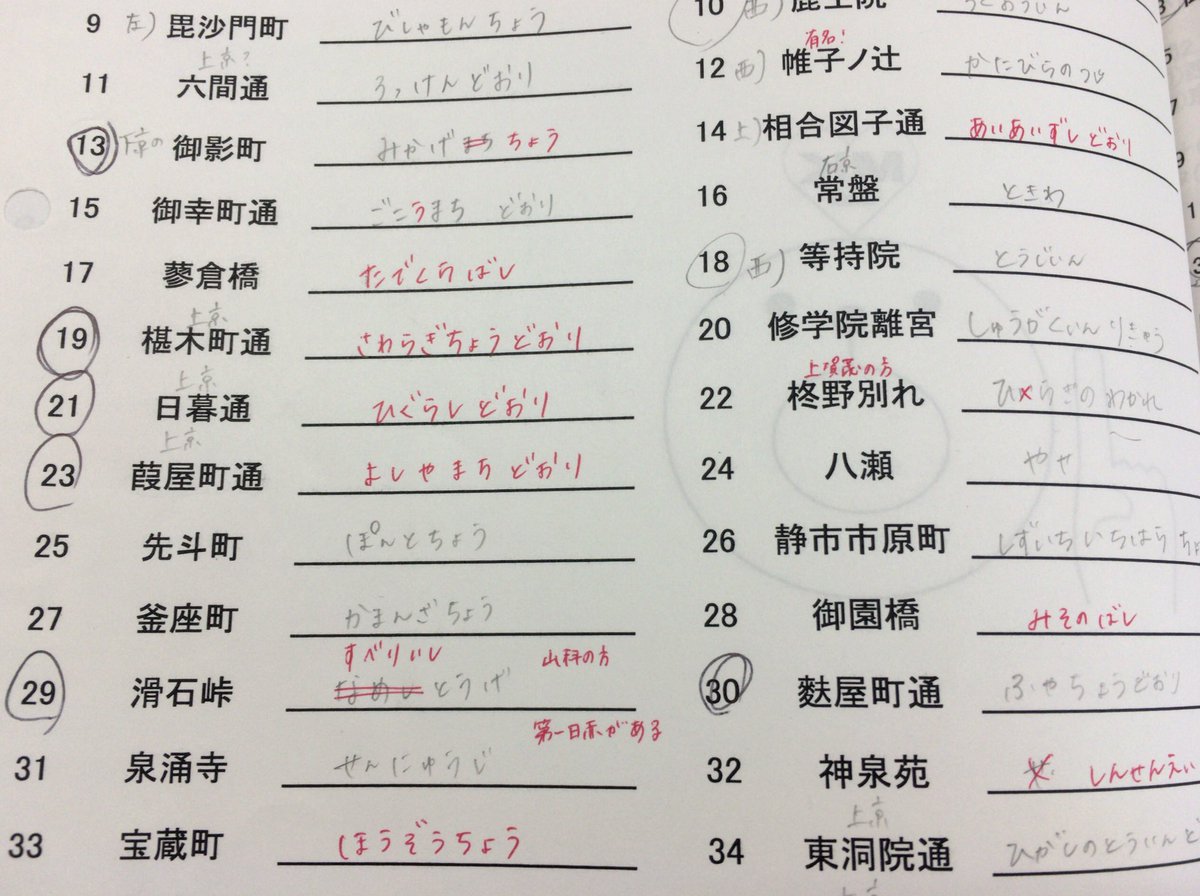 9 左) 毘沙門町 びしゃもんちょう
上京?
11 六間通 ろっけんどおり
13 下京の 御影町 みかげまち ちょう
15 御幸町通 ごこうまち どおり
17 蓼倉橋 たでくらばし
上京
19 椹木町通 さわらぎちょうどおり
上京
21 日暮通 ひぐらしどおり
上京
23 葭屋町通 よしやまちどおり
25 先斗町 ぽんとちょう
27 釜座町 かまんざちょう
すべりいし 山科の方
29 滑石峠 なめし とうげ
第一日赤がある
31 泉涌寺 せんにゅうじ
33 宝蔵町 ほうぞうちょう
10 西) 鹿王院 ろくおういん
有名!
12 西) 帷子ノ辻 かたびらのつじ
14 上) 相合図子通 あいあいずしどおり
右京
16 常盤 ときわ
18 西) 等持院 とうじいん
20 修学院離宮 しゅうがくいんりきゅう
上賀茂の方
22 柊野別れ ひらぎのわかれ
24 八瀬 やせ
26 静市市原町 しずいちいちはらちょ
28 御園橋 みそのばし
30 麩屋町通 ふやちょうどおり
32 神泉苑 しんせんえい
上京
34 東洞院通 ひがしのとういんど
上京